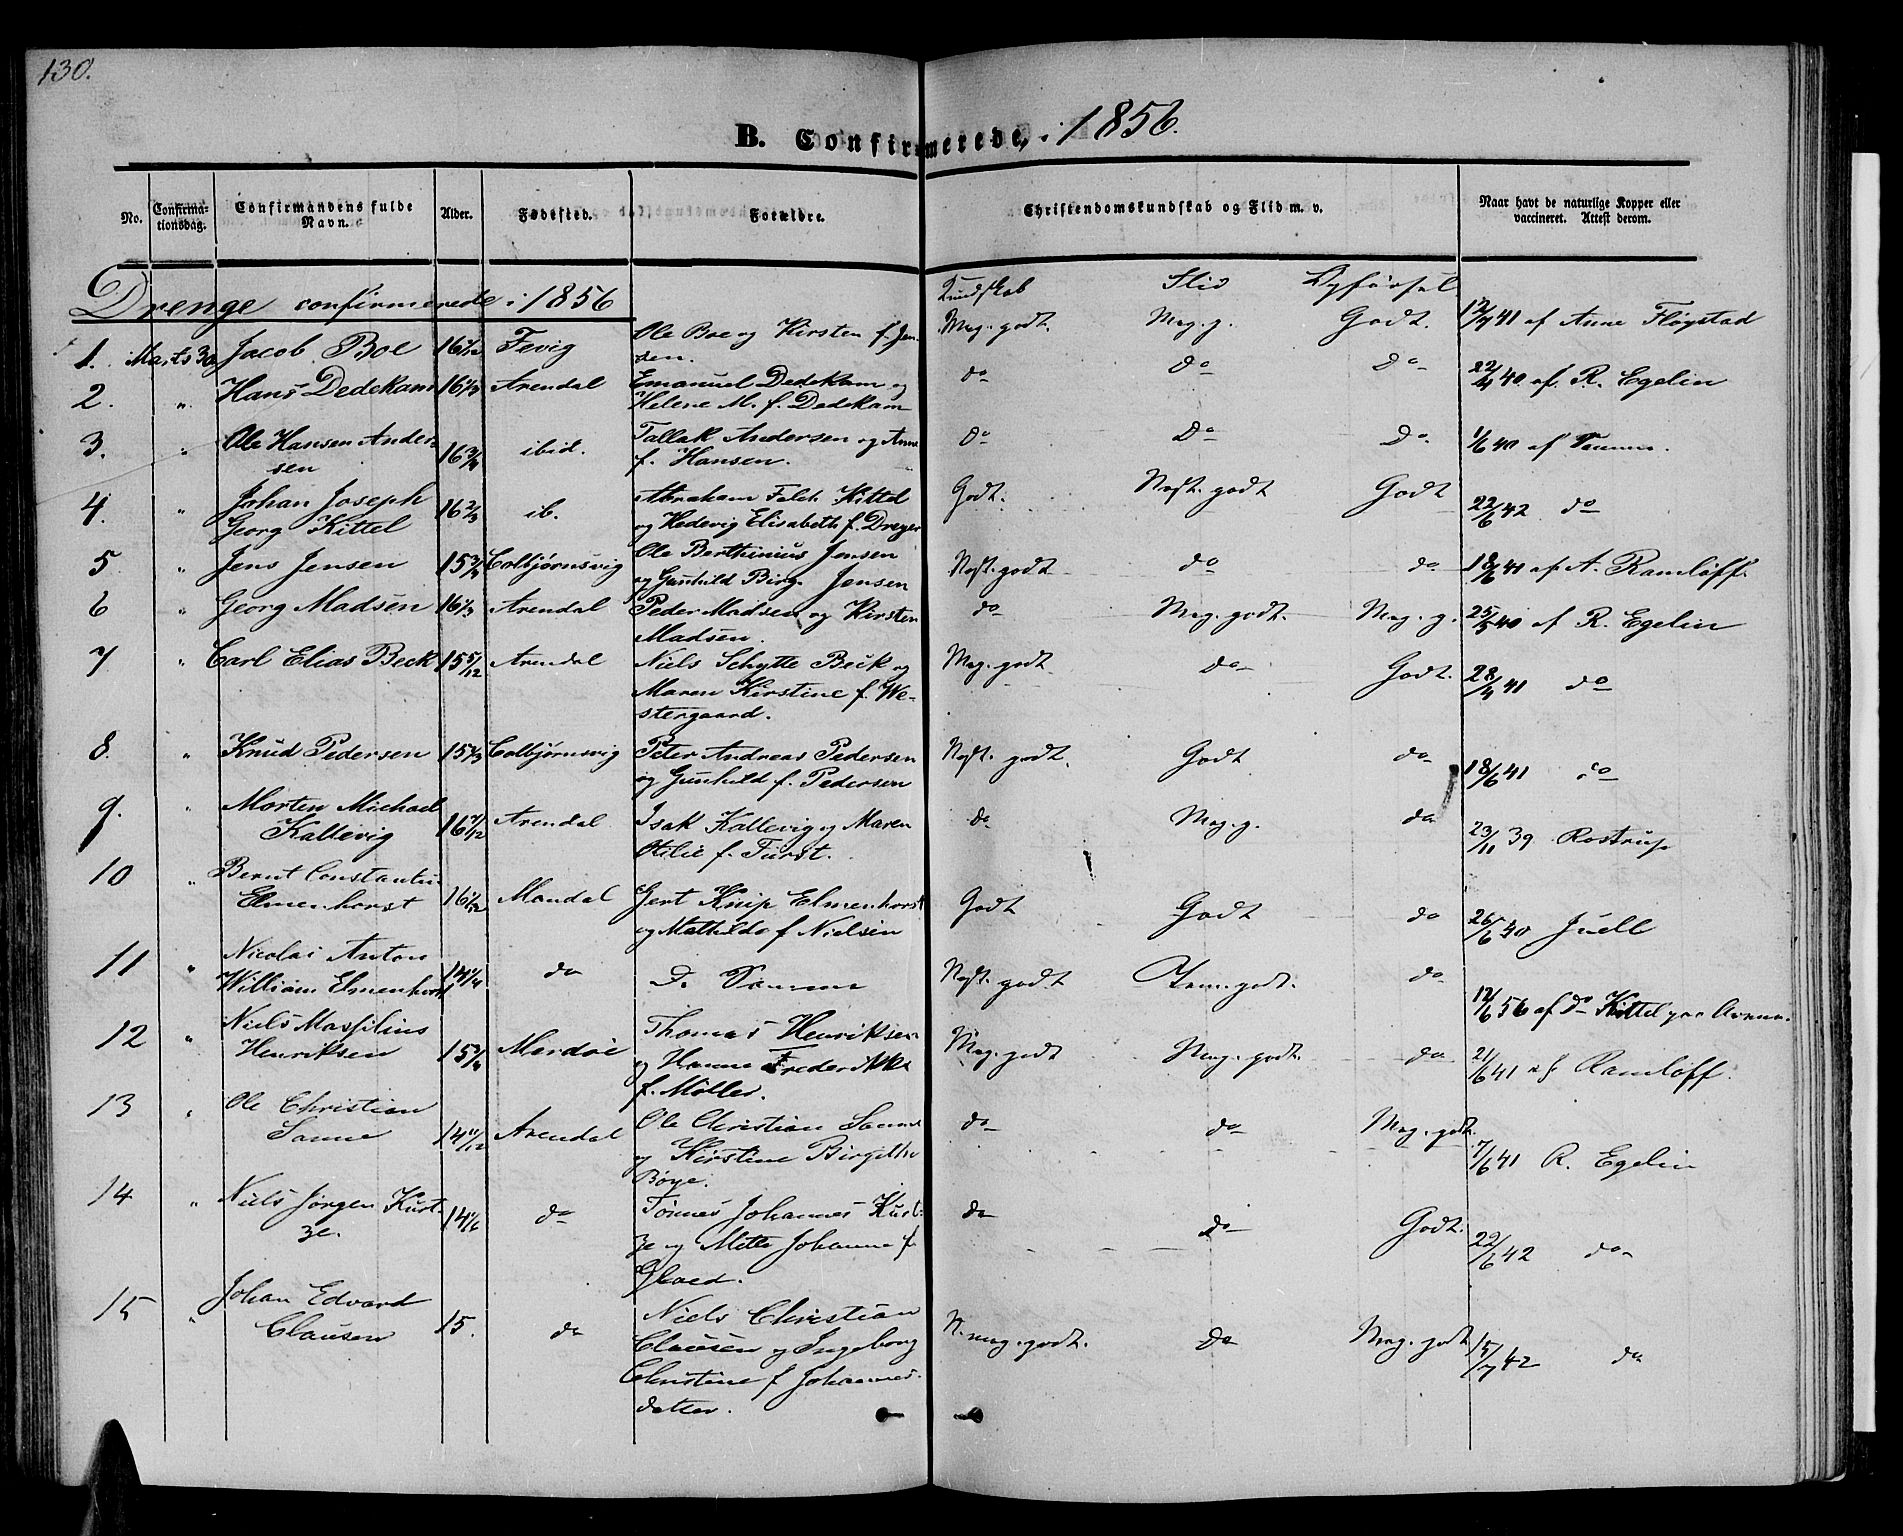 130.
B. Confirmerede, i 1856.
No.
Confirma-
tionsdag.
Confirmandens fulde
Navn.
Alder.
Fødested.
Forældre.
Christendomskundskab og Flid m. v.
Naar havt de naturlige Kopper eller
vaccineret. Attest derom.
Drenge confirmerede i 1856
Kundskab Flid Opførsel
1. Marts 30 Jacob Boe 16 1/12 Fevig Ole Boe og Kirsten f. Jen-
sen. Meg. godt. Meg. g. Godt. 41 af Anne Fløystad
2. " Hans Dedekam 16 1/3 Arendal Emanuel Dedekam og
Helene M. f. Dedekam do do do 22/4 40 af R. Egelin
3. " Ole Hansen Ander-
sen 16 3/4 ibid. Tallak Andersen og Anne
f. Hansen. do Do Do 1/6 40 af Samme.
4. " Johan Joseph
Georg Kittel 16 2/3 ib. Abraham Falck Kittel
og Hedevig Elisabeth f. Dreyer Godt. Nost. godt Godt 22/6 42 do
5 " Jens Jensen 15 3/4 Colbjørnsvig Ole Berthinius Jensen
og Gunhild Birg. Jensen Nost. godt do do 18/6 41 af A. Ramløff.
6 " Georg Madsen 16 1/3 Arendal Peder Madsen og Kirsten
Madsen. do Meg. godt. Meg. g. 25/5 40 af R. Egelin
7 " Carl Elias Beck 15 5/12 Arendal Niels Schytte Beck og
Maren Kirstine f. We-
stergaard. Meg. godt do Godt. 28/4 41 do
8. " Knud Pedersen 15 Colbjørnsvig Peter Andreas Pedersen
og Gunhild f. Pedersen Nost. godt. Godt do 18/6 41 do
9. " Morten Michael
Kallevig 16 Arendal Isak Kallevig og Maren
Otilie f. Fürst. do Meg. g. do 23/11 39 Rostrup
10 " Bernt Constantin
Elmenhorst 16 Mandal Gert Knip Elmenhorst
og Mathilde f Nielsen Godt Godt do 26/6 40 Juell
11 " Nicolai Anton
William Elmenhorst 14 1/4 do De Samme Nost. godt Tem. godt. do 12/6 56 af Dr Kittel
12 " Niels Massilius
Henriksen 15 Merdøe Thomas Henriksen
og Hanne Frederikke
f. Møller. Meg. godt Meg. godt. do 21/6 41 af Ramløff.
13 " Ole Christian
Sanne 14 11/12 Arendal Ole Christian Sanne
og Kirstine Birgitte
Bøye. do do Meg. godt. 7/6 41 R. Egelin
14 " Niels Jørgen Kust-
ze. 14 do Tønnes Johannes Kust-
ze og Mette Johanne f
Gloed. do do Godt. 22/6 42 do
15 " Johan Edvard
Clausen 15. do Niels Christian
Clausen og Ingeborg
Christine f Johannes-
datter. N. meg. godt. Do Meg. godt 15/7 42 do